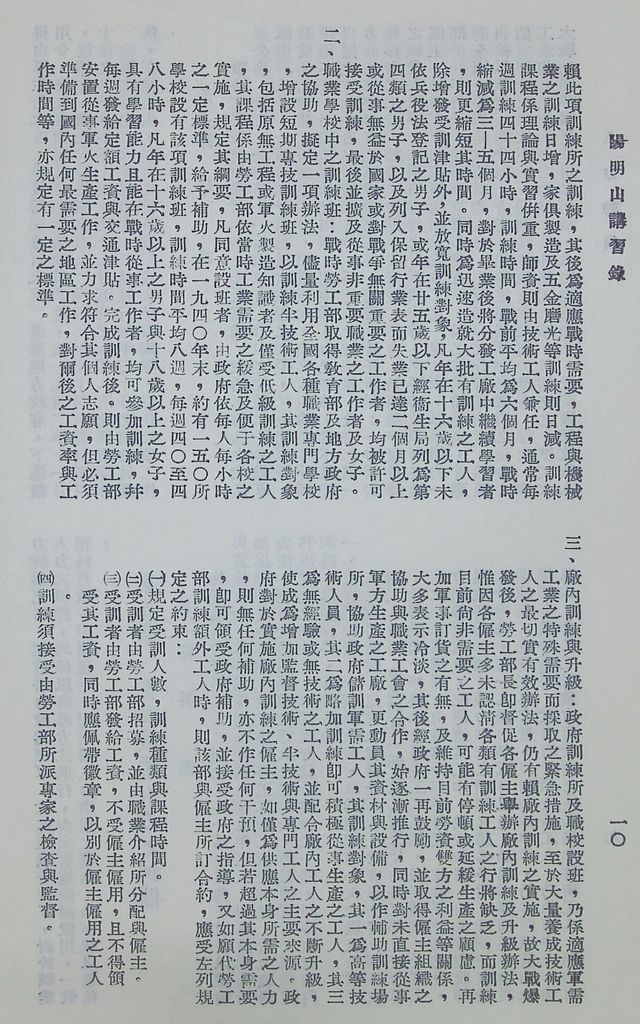 陽明山講習錄
一〇
賴此項訓練所之訓練，其後為適應戰時需要，工程與機械
業之訓練日增，家俱製造及五金磨光等訓練則日減。訓練
課程係理論與實習併重，師資則由技術工人兼任，通常每
週訓練四十四小時，訓練時間，戰前平均為六個月，戰時
縮減為三—五個月，對於畢業後將分發工廠中繼續學習者
，則更縮短其時間。同時為迅速造就大批有訓練之工人，
除增發受訓津貼外，並放寬訓練對象，凡年在十六歲以下未
依兵役法登記之男子，或年在廿五歲以下經衞生局列為第
四類之男子，以及列入保留行業表而失業已達二個月以上
或從事無益於國家或對戰爭無關重要之工作者，均被許可
接受訓練，最後並擴及從事非重要職業之工作者及女子。
二、職業學校中之訓練班：戰時勞工部取得敎育部及地方政府
之協助，擬定一項辦法，儘量利用全國各種職業專門學校
，增設短期專技訓練班，以訓練半技術工人，其訓練對象
，包括原無工程或軍火製造知識者及僅受低級訓練之工人
，其課程係由勞工部依當時工業需要之緩急及便于各校之
實施，規定其綱要，凡同意設班者，由政府依每人每小時
之一定標準，給予補助，在一九四〇年末，約有一五〇所
學校設有該項訓練班，訓練時間平均八週，每週四〇至四
八小時，凡年在十六歲以上之男子與十八歲以上之女子，
具有學習能力且能在戰時從事工作者，均可參加訓練，幷
每週發給定額工資與交通津貼。完成訓練後。則由勞工部
安置從事軍火生產工作，並力求符合其個人志願，但必須
準備到國內任何最需要之地區工作，對爾後之工資率與工
作時間等，亦規定有一定之標準。
三、廠內訓練與升級：政府訓練所及職校設班，乃係適應軍需
工業之特殊需要而採取之緊急措施，至於大量養成技術工
人之最切實有效辦法，仍有賴廠內訓練之實施，故大戰爆
發後，勞工部長卽督促各僱主舉辦廠內訓練及升級辦法，
惟因各僱主多未認清各類有訓練工人之行將缺乏，而訓練
目前尚非需要之工人，可能有停頓或延緩生產之顧慮。再
加軍事訂貨之有無，及維持目前勞資雙方之利益等關係，
大多表示冷淡，其後經政府一再鼓勵，並取得僱主組織之
協助與職業工會之合作，始逐漸推行，同時對未直接從事
軍方生產之工廠，更動員其資材與設備，以作輔助訓練場
所，協助政府儲訓軍需工人，其訓練對象，其一為高等技
術人員，其二為略加訓練卽可積極從事生產之工人，其三
為無經驗或無技術之工人，並配合廠內工人之不斷升級，
使成為增加監督技術、半技術與專門工人之主要來源。政
府對於實施廠內訓練之僱主，如僅為供應本身所需之人力
，則無任何補助，亦不作任何干預，但若超過其本身需要
，卽可領受政府補助，並接受政府之指導，又如願代勞工
部訓練額外工人時，則該部與僱主所訂合約，應受左列規
定之約束：
㈠規定受訓人數，訓練種類與課程時間。
㈡受訓者由勞工部招募，並由職業介紹所分配與僱主。
㈢受訓者由勞工部發給工資，不受僱主僱用，且不得領
受其工資，同時應佩帶徽章，以別於僱主僱用之工人
。
㈣訓練須接受由勞工部所派專家之檢查與監督。